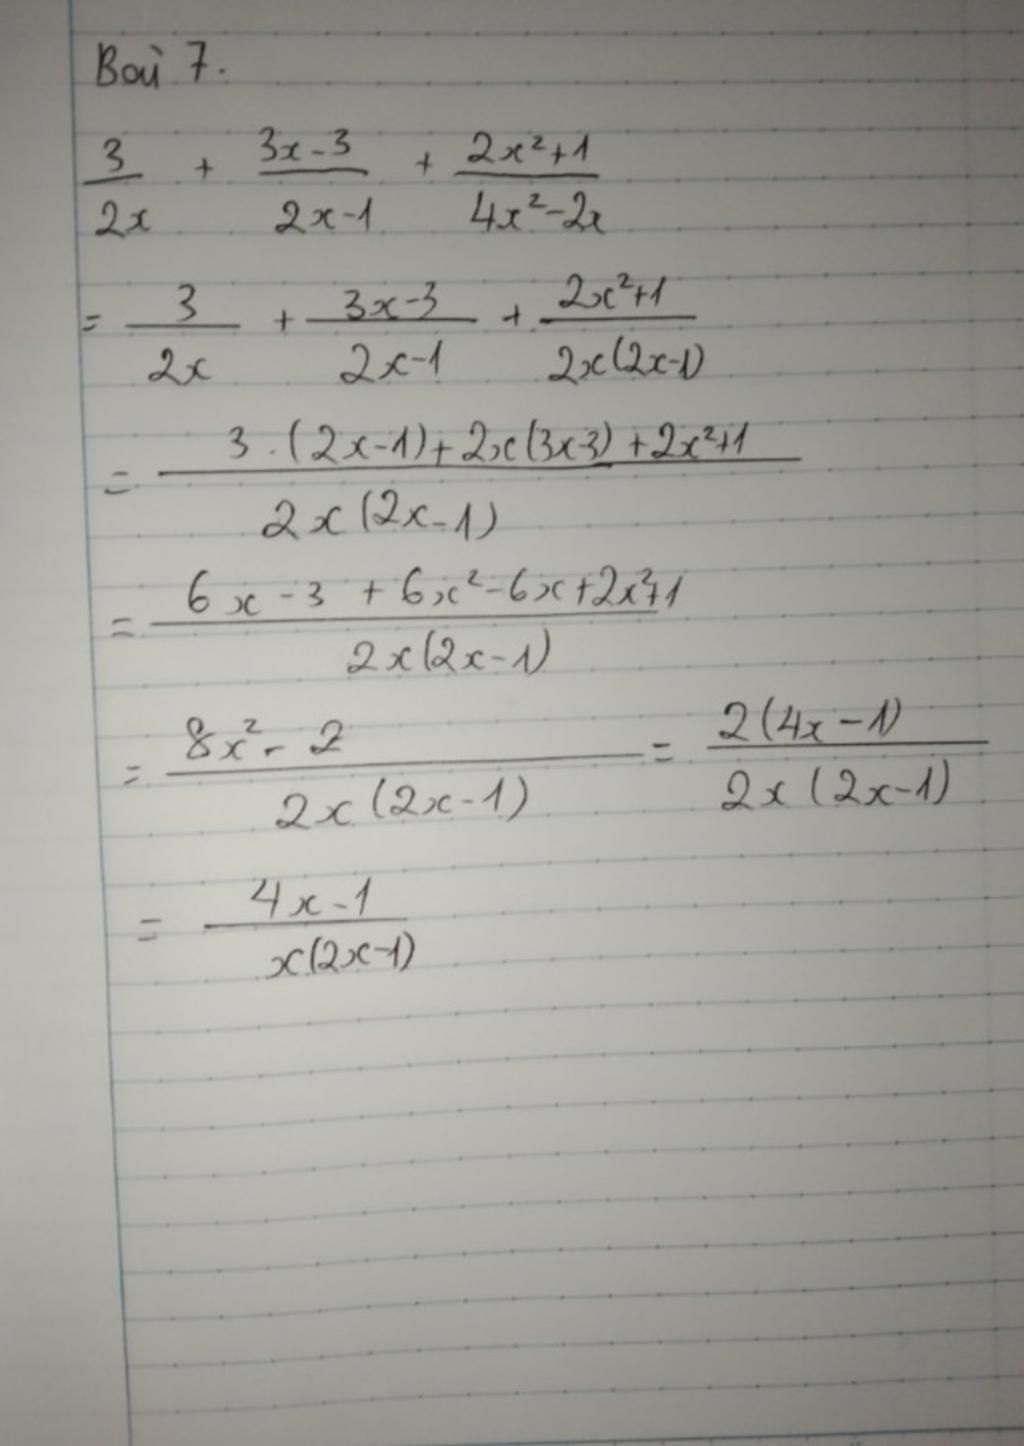 Bài 7.
3/2x + (3x-3)/(2x-1) + (2x²+1)/(4x²-2x)
= 3/2x + (3x-3)/(2x-1) + (2x²+1)/(2x(2x-1))
= (3.(2x-1)+2x(3x-3)+2x²+1)/(2x(2x-1))
= (6x-3+6x²-6x+2x²+1)/(2x(2x-1))
= (8x²-2)/(2x(2x-1)) = (2(4x-1))/(2x(2x-1))
= (4x-1)/(x(2x-1))